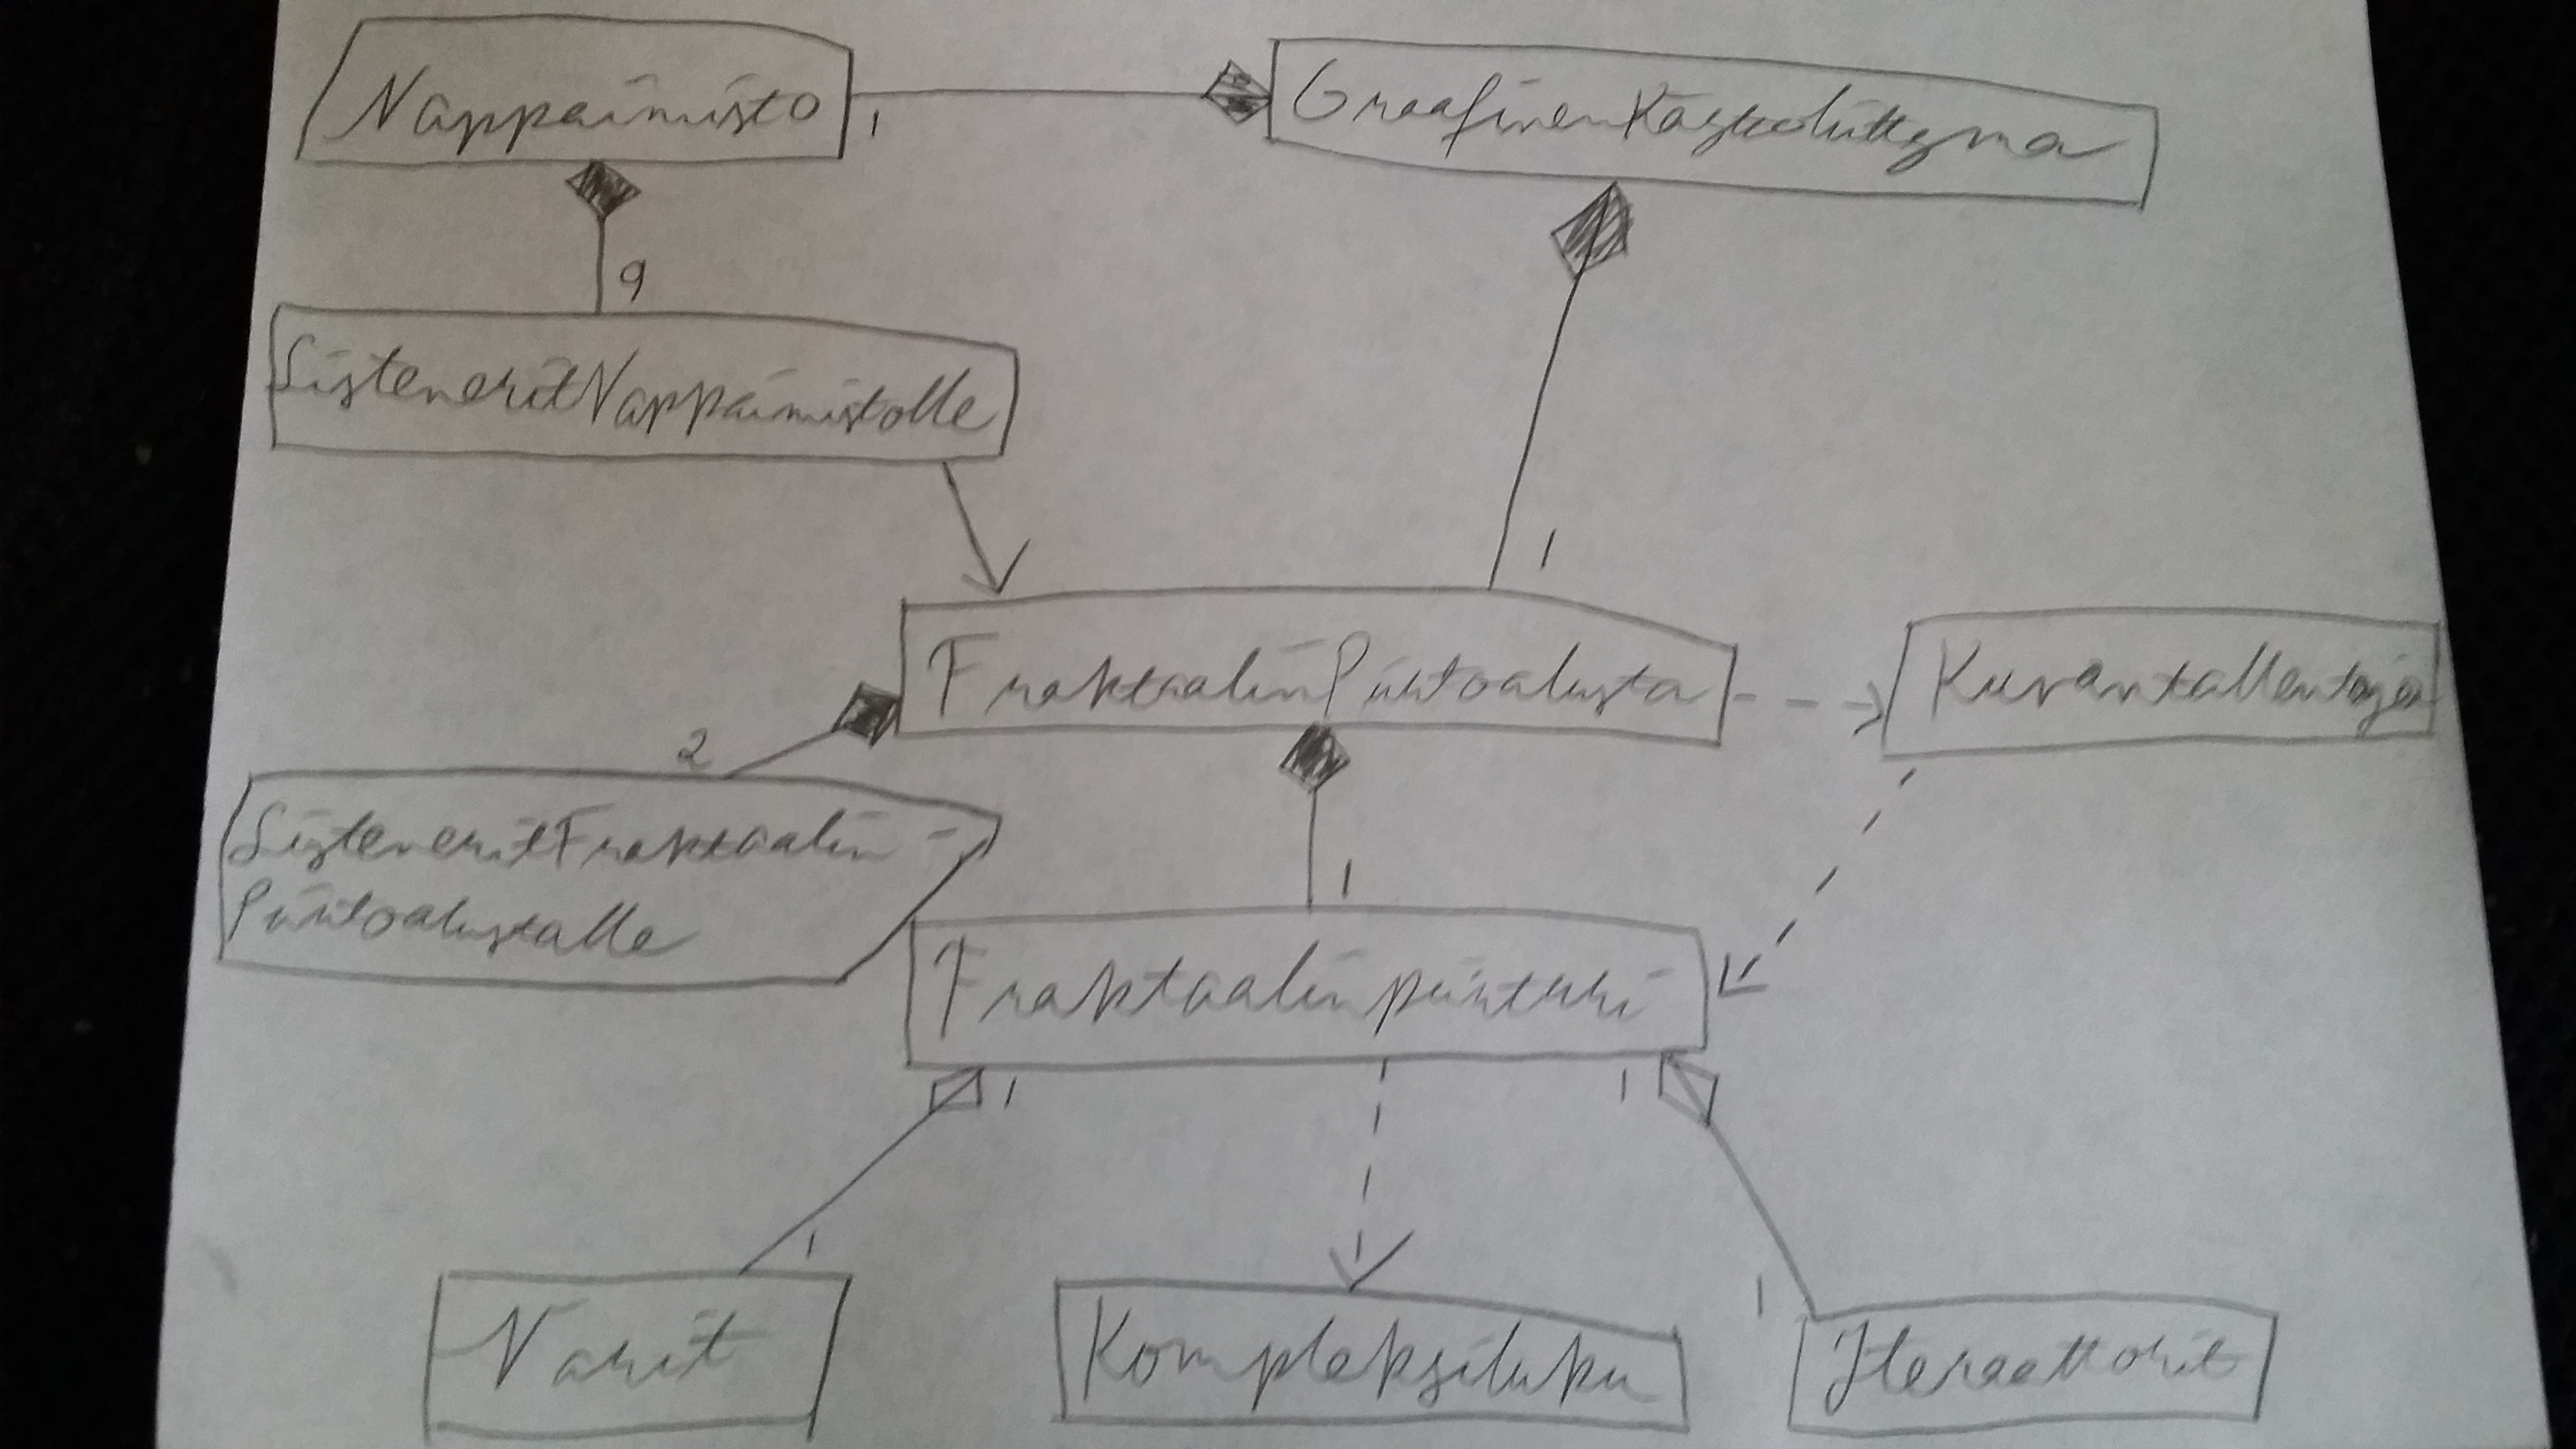 Nappaimisto
1
GraafinenKayttoliittyma
9
ListeneritNappaimistolle
1
FraktaalinPiirtoalusta
Kuvantallentaja
2
ListeneritFraktaalin-
Piirtoalustalle
1
Fraktaalinpiirturi
1
1
1
1
Varit
Kompleksiluku
Iteraattorit